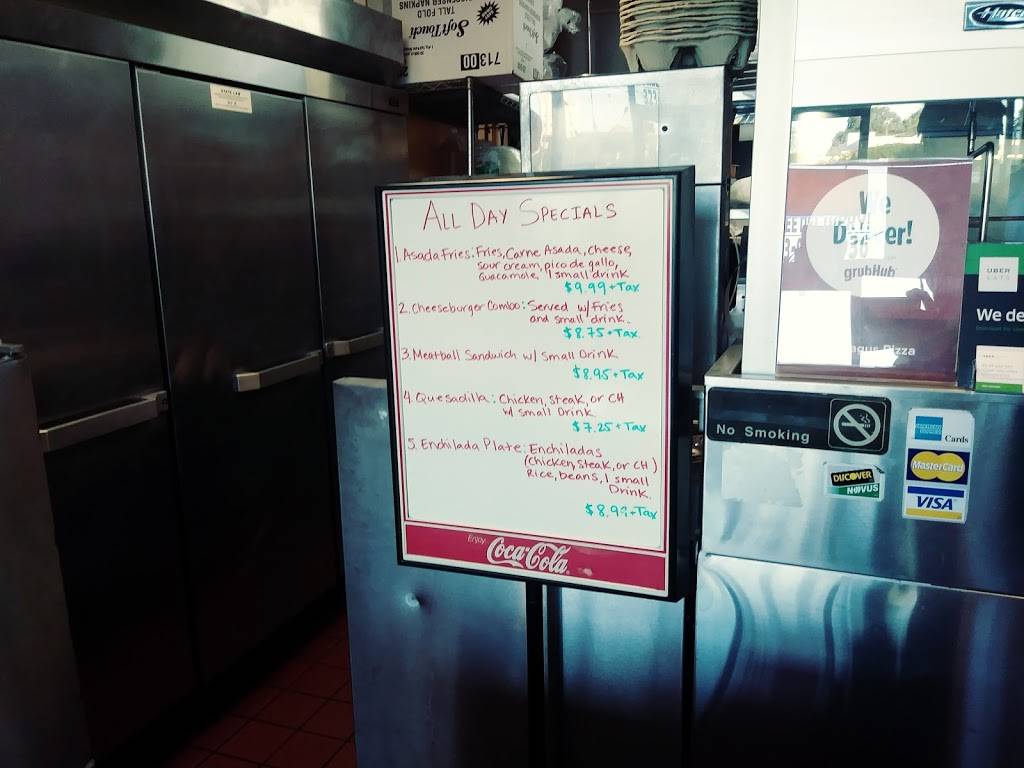 DISPENSER NAPKINS
TALL FOLD
SoftTouch
713 00
STATE LAW
Hatco
ALL DAY SPECIALS
1. Asada Fries: Fries, Carne Asada, cheese,
sour cream, pico de gallo,
Guacamole, 1 small drink
$9.99 + Tax
2. Cheeseburger Combo: Served w/ Fries
and small drink.
$8.75 + Tax
3. Meatball Sandwich w/ Small Drink
$8.95 + Tax
4. Quesadilla: Chicken, steak, or CH
w/ small Drink
$7.25 + Tax
5. Enchilada Plate: Enchiladas
(Chicken, steak, or CH)
Rice, beans, 1 small
Drink.
$8.99 + Tax
Enjoy
Coca-Cola
We
Deliver!
grubHub
Pizza
UBER
EATS
We de
No Smoking
AMERICAN EXPRESS
Cards
MasterCard
VISA
DISCOVER
NOVUS